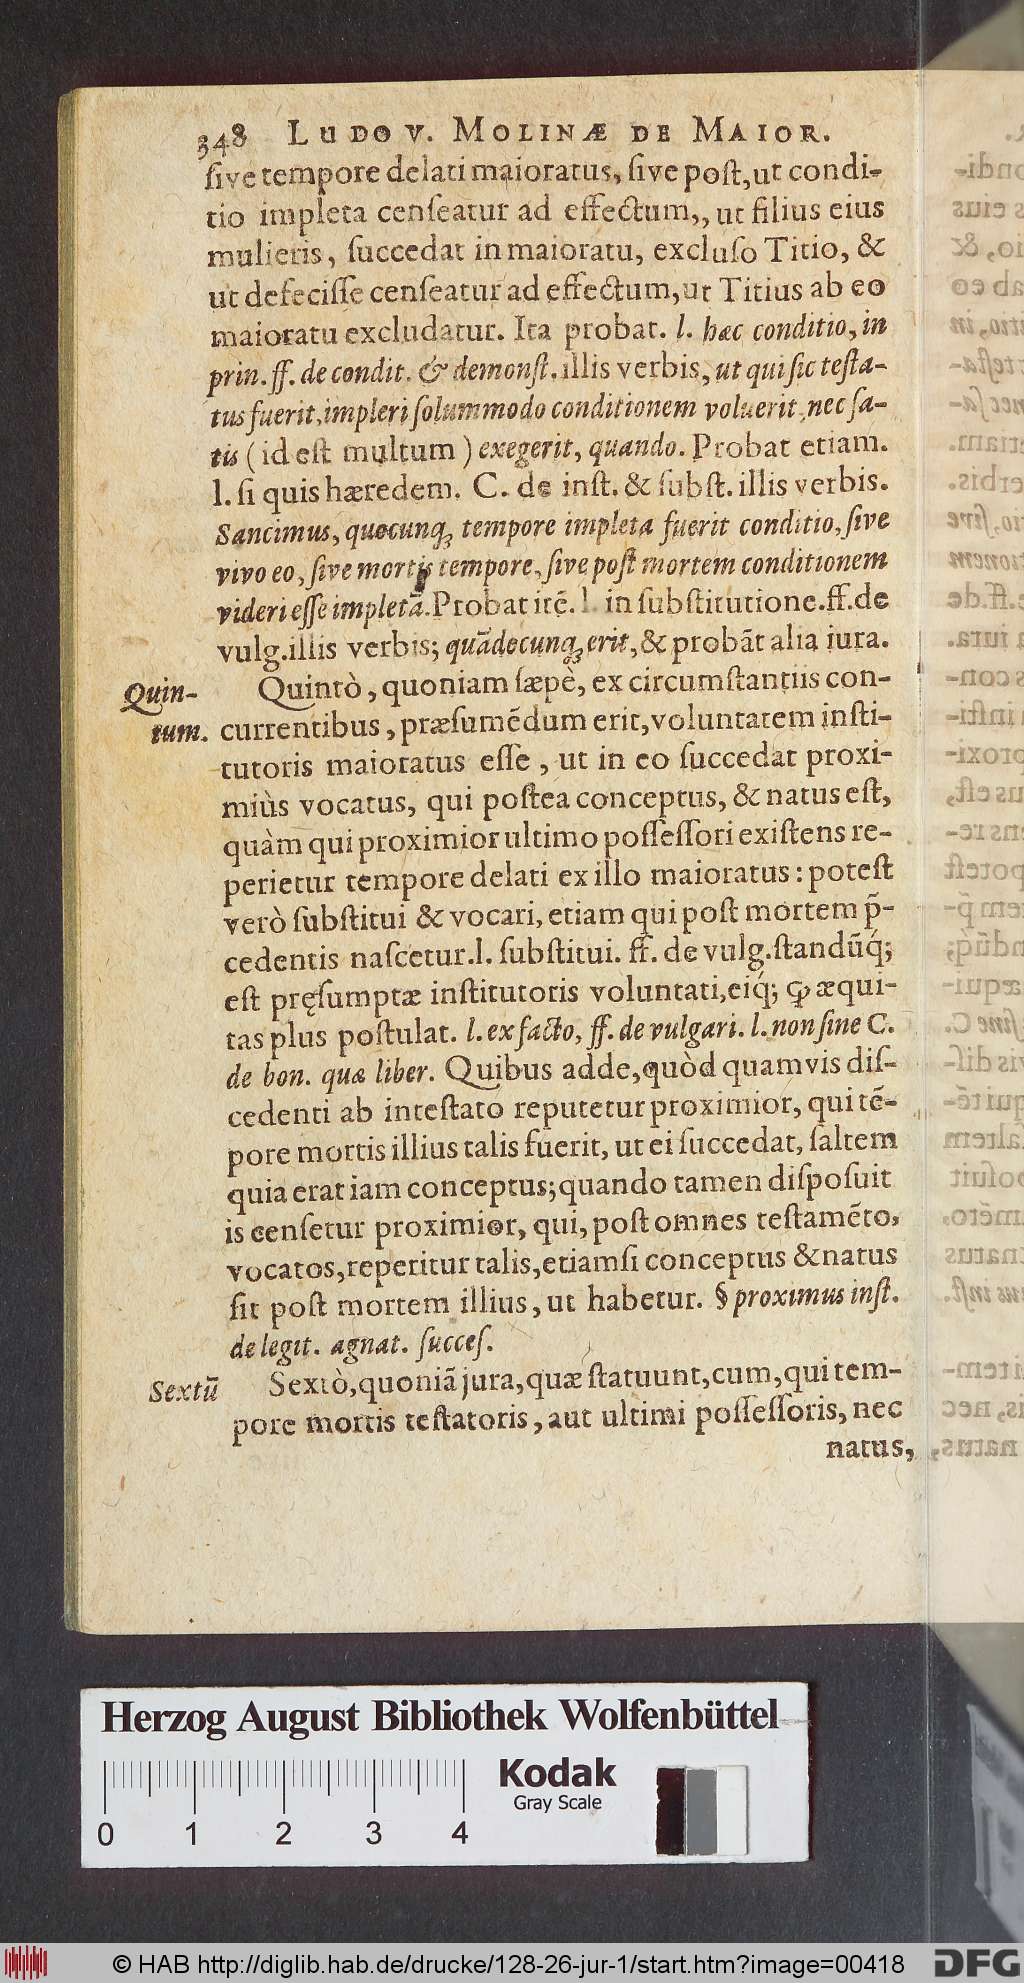 348 LUDOV. MOLINÆ DE MAIOR.
sive tempore delati maioratus, sive post, ut condi-
tio impleta censeatur ad effectum,, ut filius eius
mulieris, succedat in maioratu, excluso Titio, &
ut defecisse censeatur ad effectum, ut Titius ab eo
maioratu excludatur. Ita probat. l. hæc conditio, in
prin. ff. de condit. & demonst. illis verbis, ut qui sic testa-
tus fuerit, impleri solummodo conditionem voluerit, nec sa-
tis (id est multum) exegerit, quando. Probat etiam.
l. si quis hæredem. C. de inst. & subst. illis verbis.
Sancimus, quocunq; tempore impleta fuerit conditio, sive
vivo eo, sive mortis tempore, sive post mortem conditionem
videri esse impletã. Probat itẽ. l. in substitutione. ff. de
vulg. illis verbis; quãdocunq; erit, & probãt alia iura.
Quin-
tum.
Quintò, quoniam sæpè, ex circumstantiis con-
currentibus, præsumẽdum erit, voluntatem insti-
tutoris maioratus esse, ut in eo succedat proxi-
miùs vocatus, qui postea conceptus, & natus est,
quàm qui proximior ultimo possessori existens re-
perietur tempore delati ex illo maioratus: potest
verò substitui & vocari, etiam qui post mortem p̃-
cedentis nascetur. l. substitui. ff. de vulg. standũq́;
est pręsumptæ institutoris voluntati, eiq́; ꝙ æqui-
tas plus postulat. l. ex facto, ff. de vulgari. l. non sine C.
de bon. quæ liber. Quibus adde, quòd quamvis dis-
cedenti ab intestato reputetur proximior, qui tẽ-
pore mortis illius talis fuerit, ut ei succedat, saltem
quia erat iam conceptus; quando tamen disposuit
is censetur proximior, qui, post omnes testamẽto,
vocatos, reperitur talis, etiamsi conceptus & natus
sit post mortem illius, ut habetur. § proximus inst.
de legit. agnat. succes.
Sextũ
Sextò, quoniã jura, quæ statuunt, cum, qui tem-
pore mortis testatoris, aut ultimi possessoris, nec
natus,
Herzog August Bibliothek Wolfenbüttel
Kodak
Gray Scale
0 1 2 3 4
© HAB http://diglib.hab.de/drucke/128-26-jur-1/start.htm?image=00418
DFG